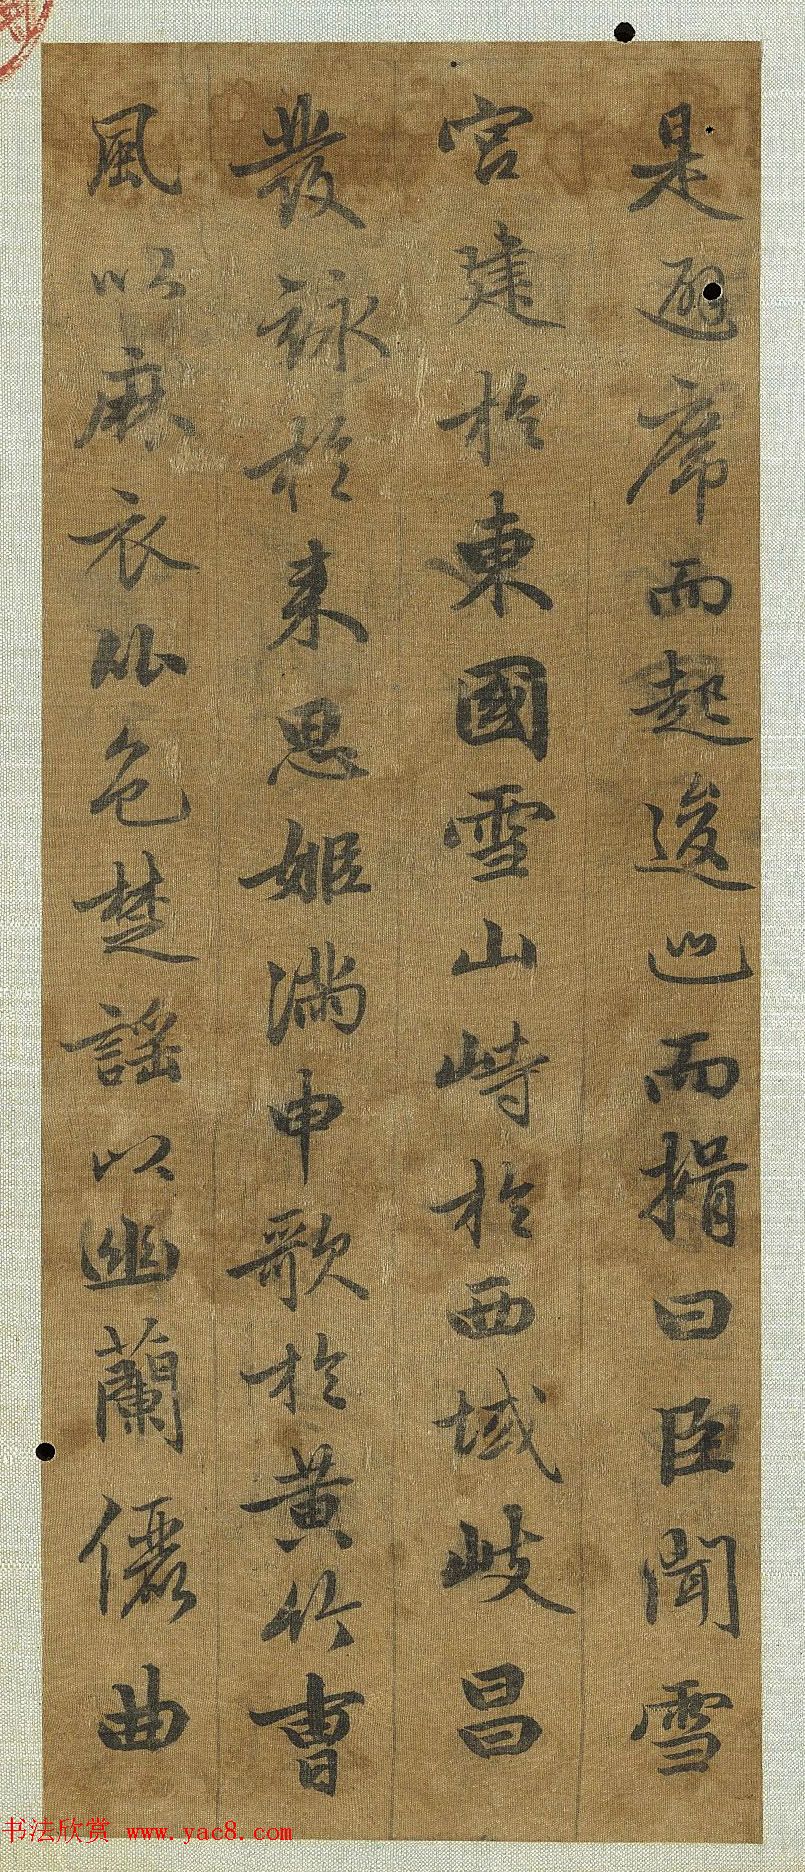 是避席而起逡巡而揖曰臣聞雪
宮建於東國雪山峙於西域岐昌
發詠於来思姬滿申歌於黄竹曹
風以麻衣比色楚謡以幽蘭儷曲
书法欣赏 www.yac8.com